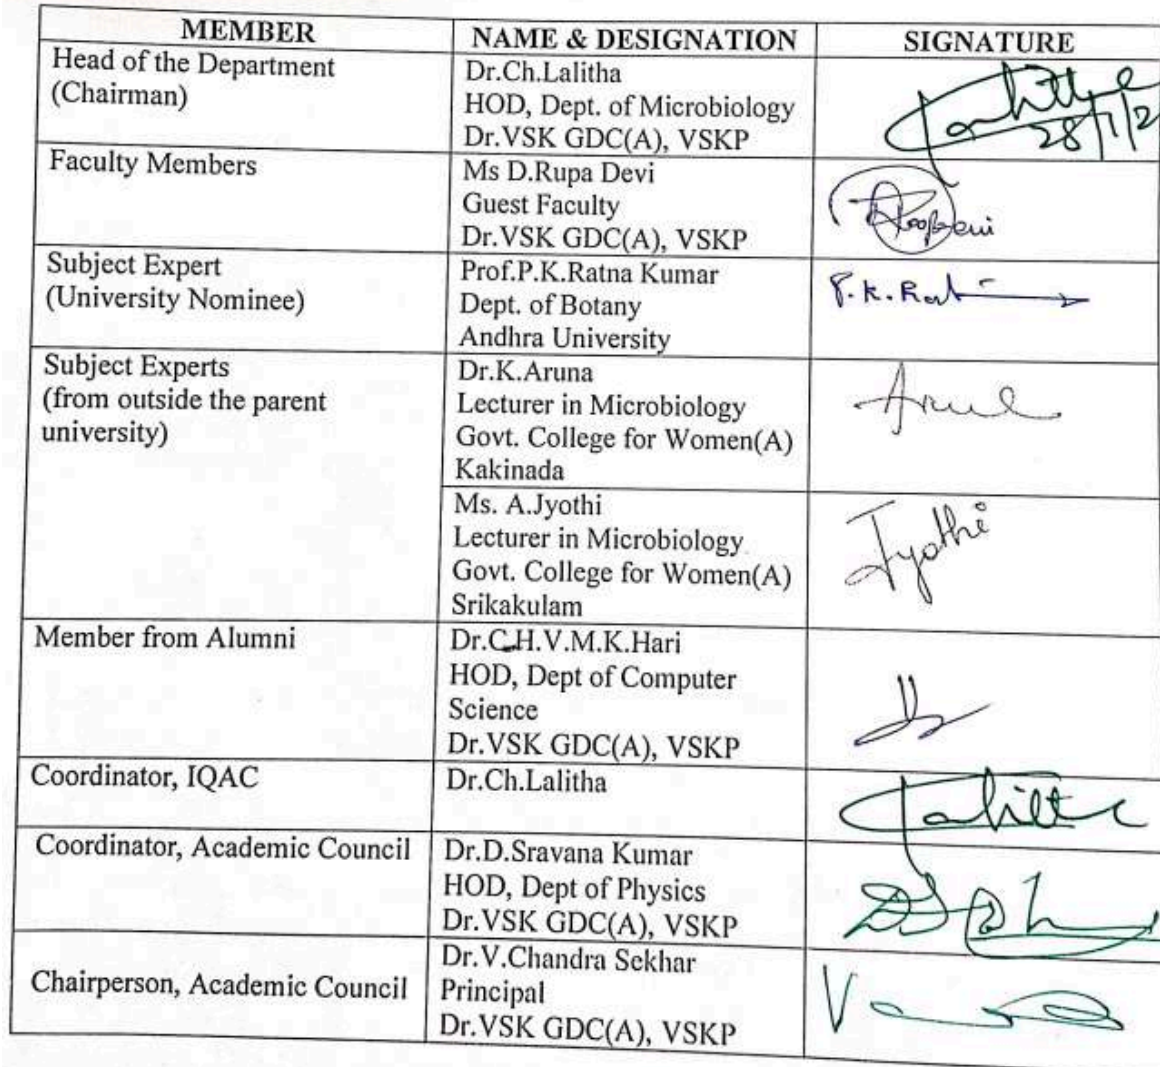 MEMBER
NAME & DESIGNATION
SIGNATURE
Head of the Department
(Chairman)
Dr.Ch.Lalitha
HOD, Dept. of Microbiology
Dr.VSK GDC(A), VSKP
28/1/2
Faculty Members
Ms D.Rupa Devi
Guest Faculty
Dr.VSK GDC(A), VSKP
Subject Expert
(University Nominee)
Prof.P.K.Ratna Kumar
Dept. of Botany
Andhra University
P.K.Rat
Subject Experts
(from outside the parent
university)
Dr.K.Aruna
Lecturer in Microbiology
Govt. College for Women(A)
Kakinada
Ms. A.Jyothi
Lecturer in Microbiology
Govt. College for Women(A)
Srikakulam
Jyothi
Member from Alumni
Dr.C.H.V.M.K.Hari
HOD, Dept of Computer
Science
Dr.VSK GDC(A), VSKP
Coordinator, IQAC
Dr.Ch.Lalitha
Coordinator, Academic Council
Dr.D.Sravana Kumar
HOD, Dept of Physics
Dr.VSK GDC(A), VSKP
Chairperson, Academic Council
Dr.V.Chandra Sekhar
Principal
Dr.VSK GDC(A), VSKP